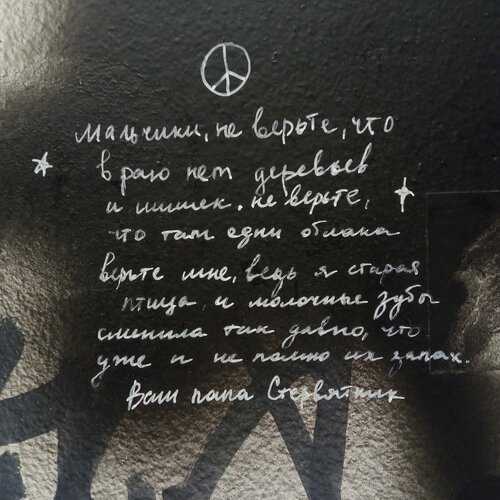 мальчики, не верьте, что
в раю нет деревьев
и шишек. не верьте,
что там одни облака
верьте мне, ведь я старая
птица и молочные зубы
сменила так давно, что
уже и не помню их запах.
Ваш папа Стервятник